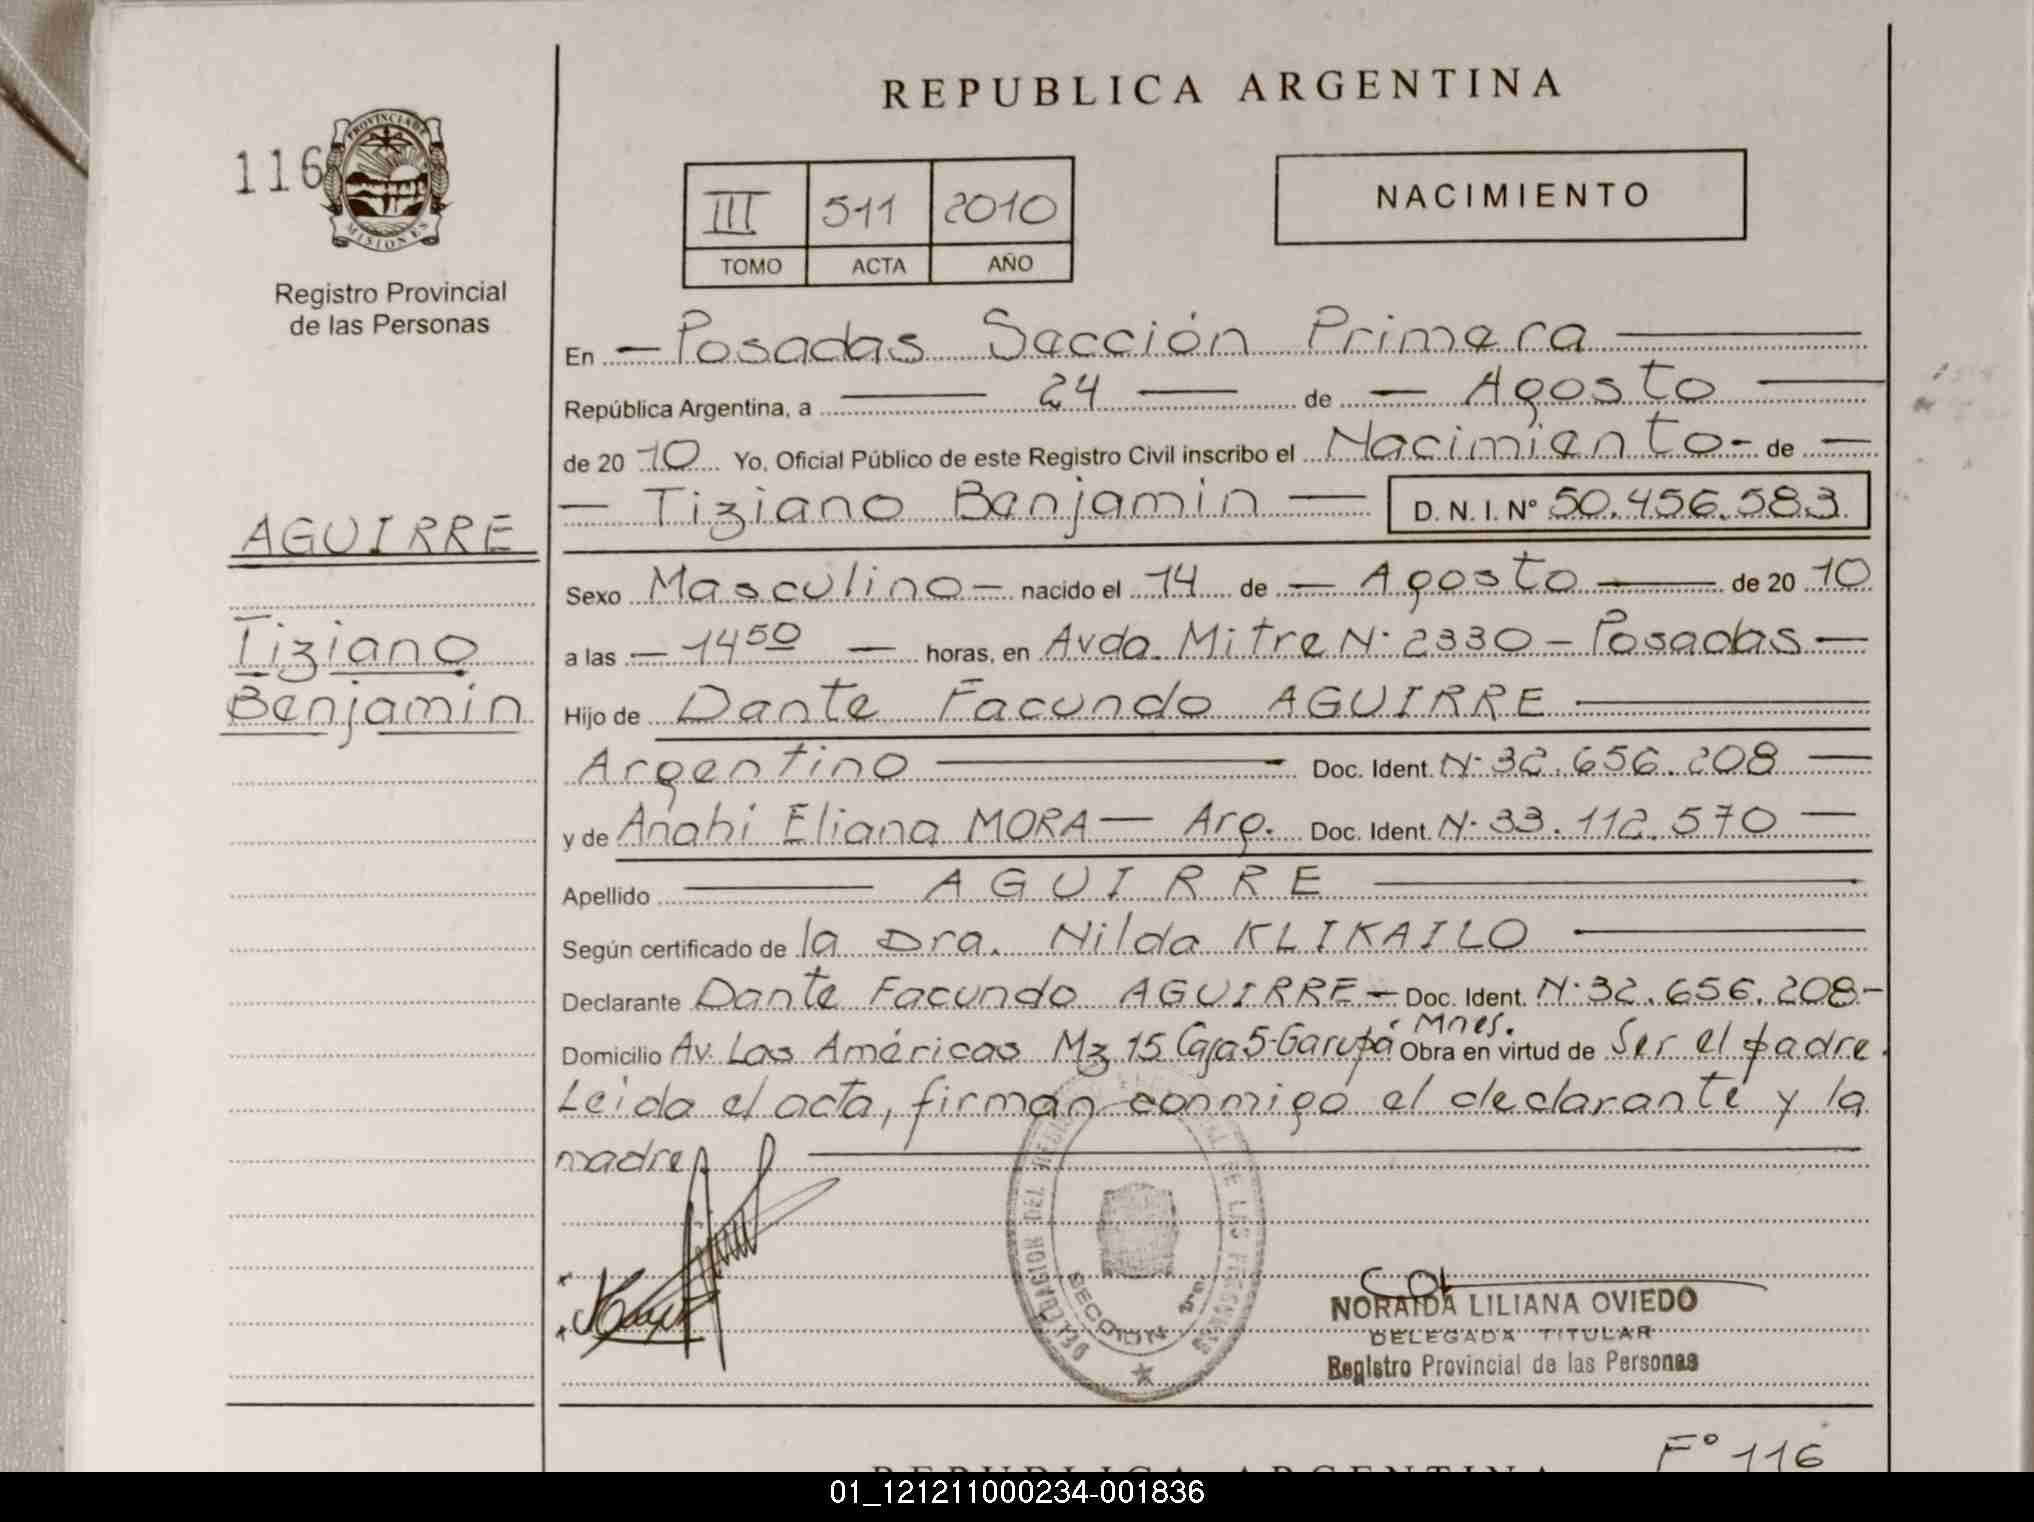 REPUBLICA ARGENTINA
116
PROVINCIA DE
MISIONES
Registro Provincial
de las Personas
III 511 2010
TOMO ACTA AÑO
NACIMIENTO
En — Posadas Sección Primera —
República Argentina, a — 24 — de — Agosto —
de 20 10 Yo, Oficial Público de este Registro Civil inscribo el Nacimiento - de —
— Tiziano Benjamin — D. N. I. Nº 50.456.583
AGUIRRE
Tiziano
Benjamin
Sexo Masculino — nacido el 14 de — Agosto — de 20 10
a las — 14 50 — horas, en Avda. Mitre N· 2330 - Posadas —
Hijo de Dante Facundo AGUIRRE —
Argentino — Doc. Ident. N· 32.656.208 —
y de Anahi Eliana MORA — Arg. Doc. Ident. N· 33.112.570 —
Apellido — AGUIRRE —
Según certificado de la Dra. Nilda KLIKAILO —
Declarante Dante Facundo AGUIRRE — Doc. Ident. N· 32.656.208 -
Domicilio Av. Las Américas Mz 15 Casa 5-Garupá - Mnes. Obra en virtud de Ser el padre.
Leida el acta, firman conmigo el declarante y la
madre —
SECCION 1ra
NORAIDA LILIANA OVIEDO
DELEGADA TITULAR
Registro Provincial de las Personas
Fº 116
REPUBLICA ARGENTINA
01_121211000234-001836